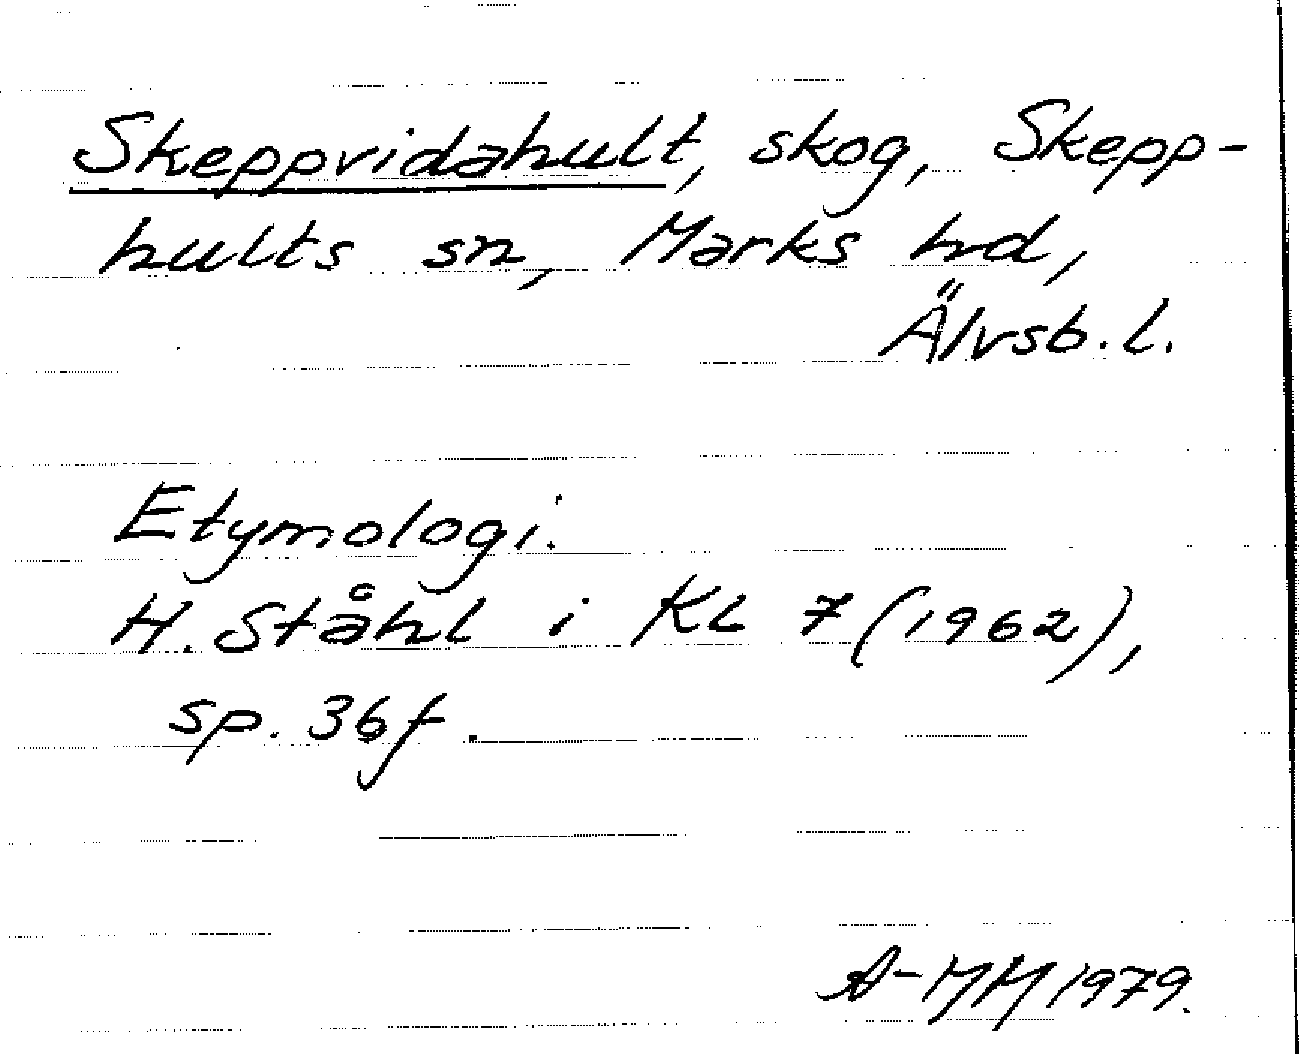 Skeppvidahult, skog, Skepp-
hults sn, Marks hd,
Älvsb. l.
Etymologi.
H. Ståhl i KL 7 (1962),
sp. 36f.
A-MH 1979.